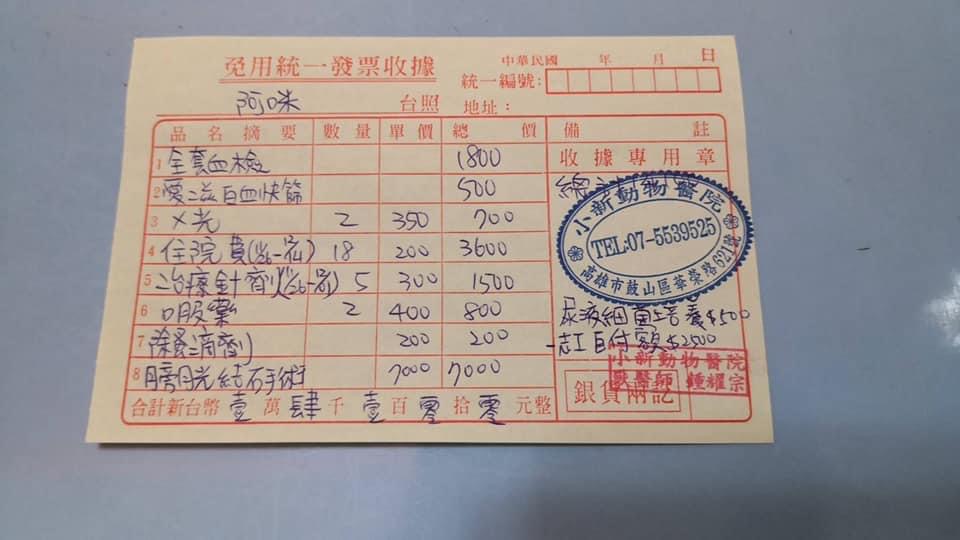 免用統一發票收據
中華民國 年 月 日
統一編號:
阿咪 台照 地址:
品名摘要 數量 單價 總價 備註
1 全套血檢 1800
2 愛滋白血快篩 500
3 X光 2 350 700
4 住院費 18 200 3600
5 治療針劑 5 300 1500
6 口服藥 2 400 800
7 除蚤滴劑 200 200
8 膀胱結石手術 7000 7000
合計新台幣 壹萬肆千壹百零拾零元整
收據專用章
總
小新動物醫院
TEL:07-5539525
高雄市鼓山區華榮路621號
尿液細菌培養$500
志工自付額$2500
小新動物醫院
獸醫師 鍾耀宗
銀貨兩訖